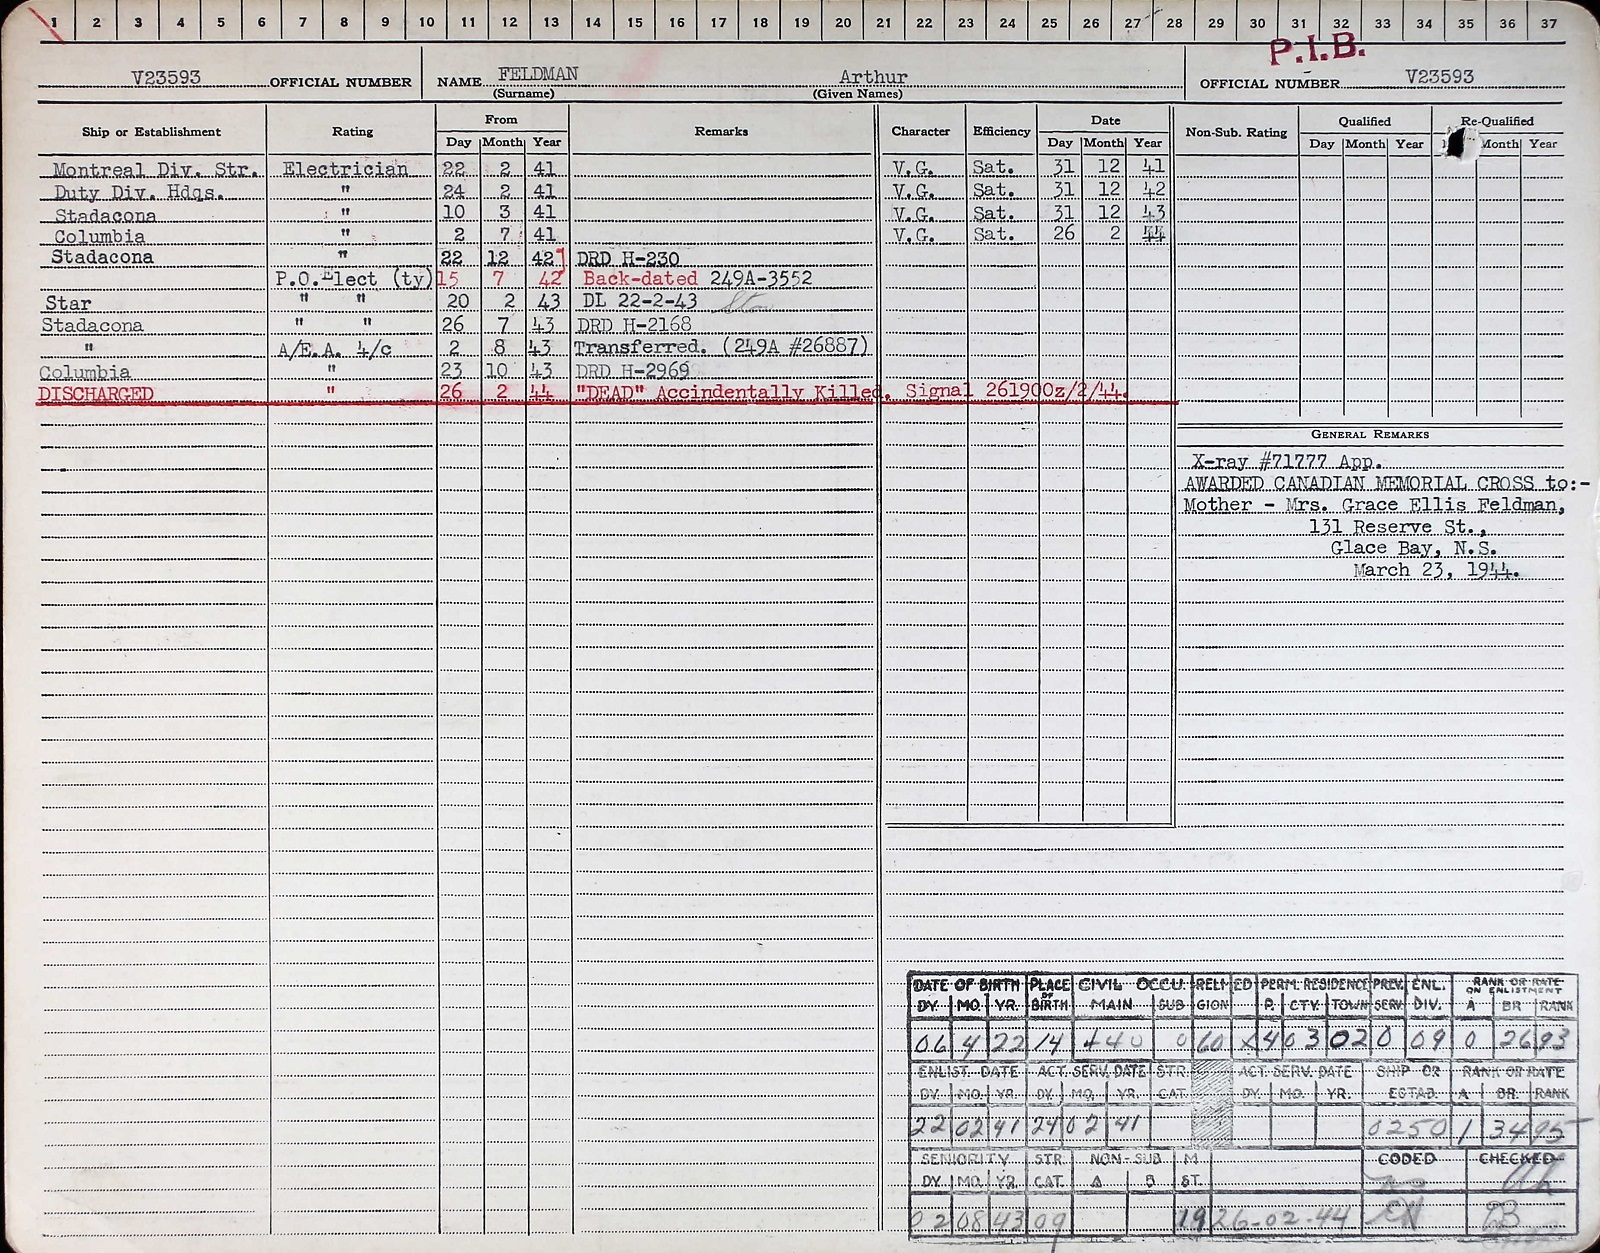 1 2 3 4 5 6 7 8 9 10 11 12 13 14 15 16 17 18 19 20 21 22 23 24 25 26 27 28 29 30 31 32 33 34 35 36 37
P.I.B.
V23593 OFFICIAL NUMBER NAME FELDMAN Arthur OFFICIAL NUMBER V23593
(Surname) (Given Names)
Ship or Establishment Rating From Remarks Character Efficiency Date Non-Sub. Rating Qualified Re-Qualified
Day Month Year Day Month Year Day Month Year Month Year
Montreal Div. Str. Electrician 22 2 41 V.G. Sat. 31 12 41
Duty Div. Hdqs. " 24 2 41 V.G. Sat. 31 12 42
Stadacona " 10 3 41 V.G. Sat. 31 12 43
Columbia " 2 7 41 V.G. Sat. 26 2 44
Stadacona " 22 12 42 DRD H-230
P.O.Elect (ty) 15 7 42 Back-dated 249A-3552
Star " " 20 2 43 DL 22-2-43 Star
Stadacona " " 26 7 43 DRD H-2168
" A/E.A. 4/c 2 8 43 Transferred. (249A #26887)
Columbia " 23 10 43 DRD H-2969
DISCHARGED " 26 2 44 "DEAD" Accindentally Killed. Signal 261900z/2/44.
GENERAL REMARKS
X-ray #71777 App.
AWARDED CANADIAN MEMORIAL CROSS to:-
Mother - Mrs. Grace Ellis Feldman,
131 Reserve St.,
Glace Bay, N.S.
March 23, 1944.
DATE OF BIRTH PLACE OF BIRTH CIVIL OCCU. RELIGION ED PERM. RESIDENCE PREV. SERV. ENL. DIV. RANK OR RATE ON ENLISTMENT
DY. MO. YR. MAIN SUB P. CTY. TOWN A BR RANK
06 4 22 14 440 0 60 X 4 03 02 0 09 0 26 93
ENLIST. DATE ACT. SERV. DATE STR. CAT. ACT. SERV. DATE SHIP OR ESTAB. RANK OR RATE
DY. MO. YR. DY. MO. YR. DY. MO. YR. A BR. RANK
22 02 41 24 02 41 0250 1 34 95
SENIORITY STR. NON-SUB M CODED CHECKED
DY. MO. YR. CAT. A B ST.
02 08 43 09 19 26-02-44